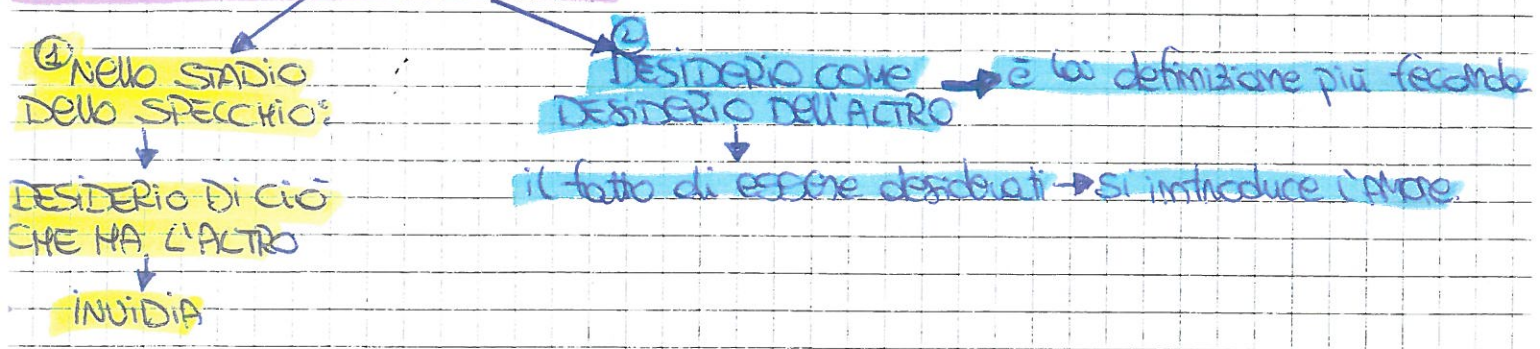 ① NELLO STADIO
DELLO SPECCHIO:
DESIDERIO DI CIÒ
CHE HA L'ALTRO
INVIDIA
②
DESIDERIO COME → è la definizione più feconda
DESIDERIO DELL'ALTRO
il fatto di essere desiderati → si introduce l'AMORE.